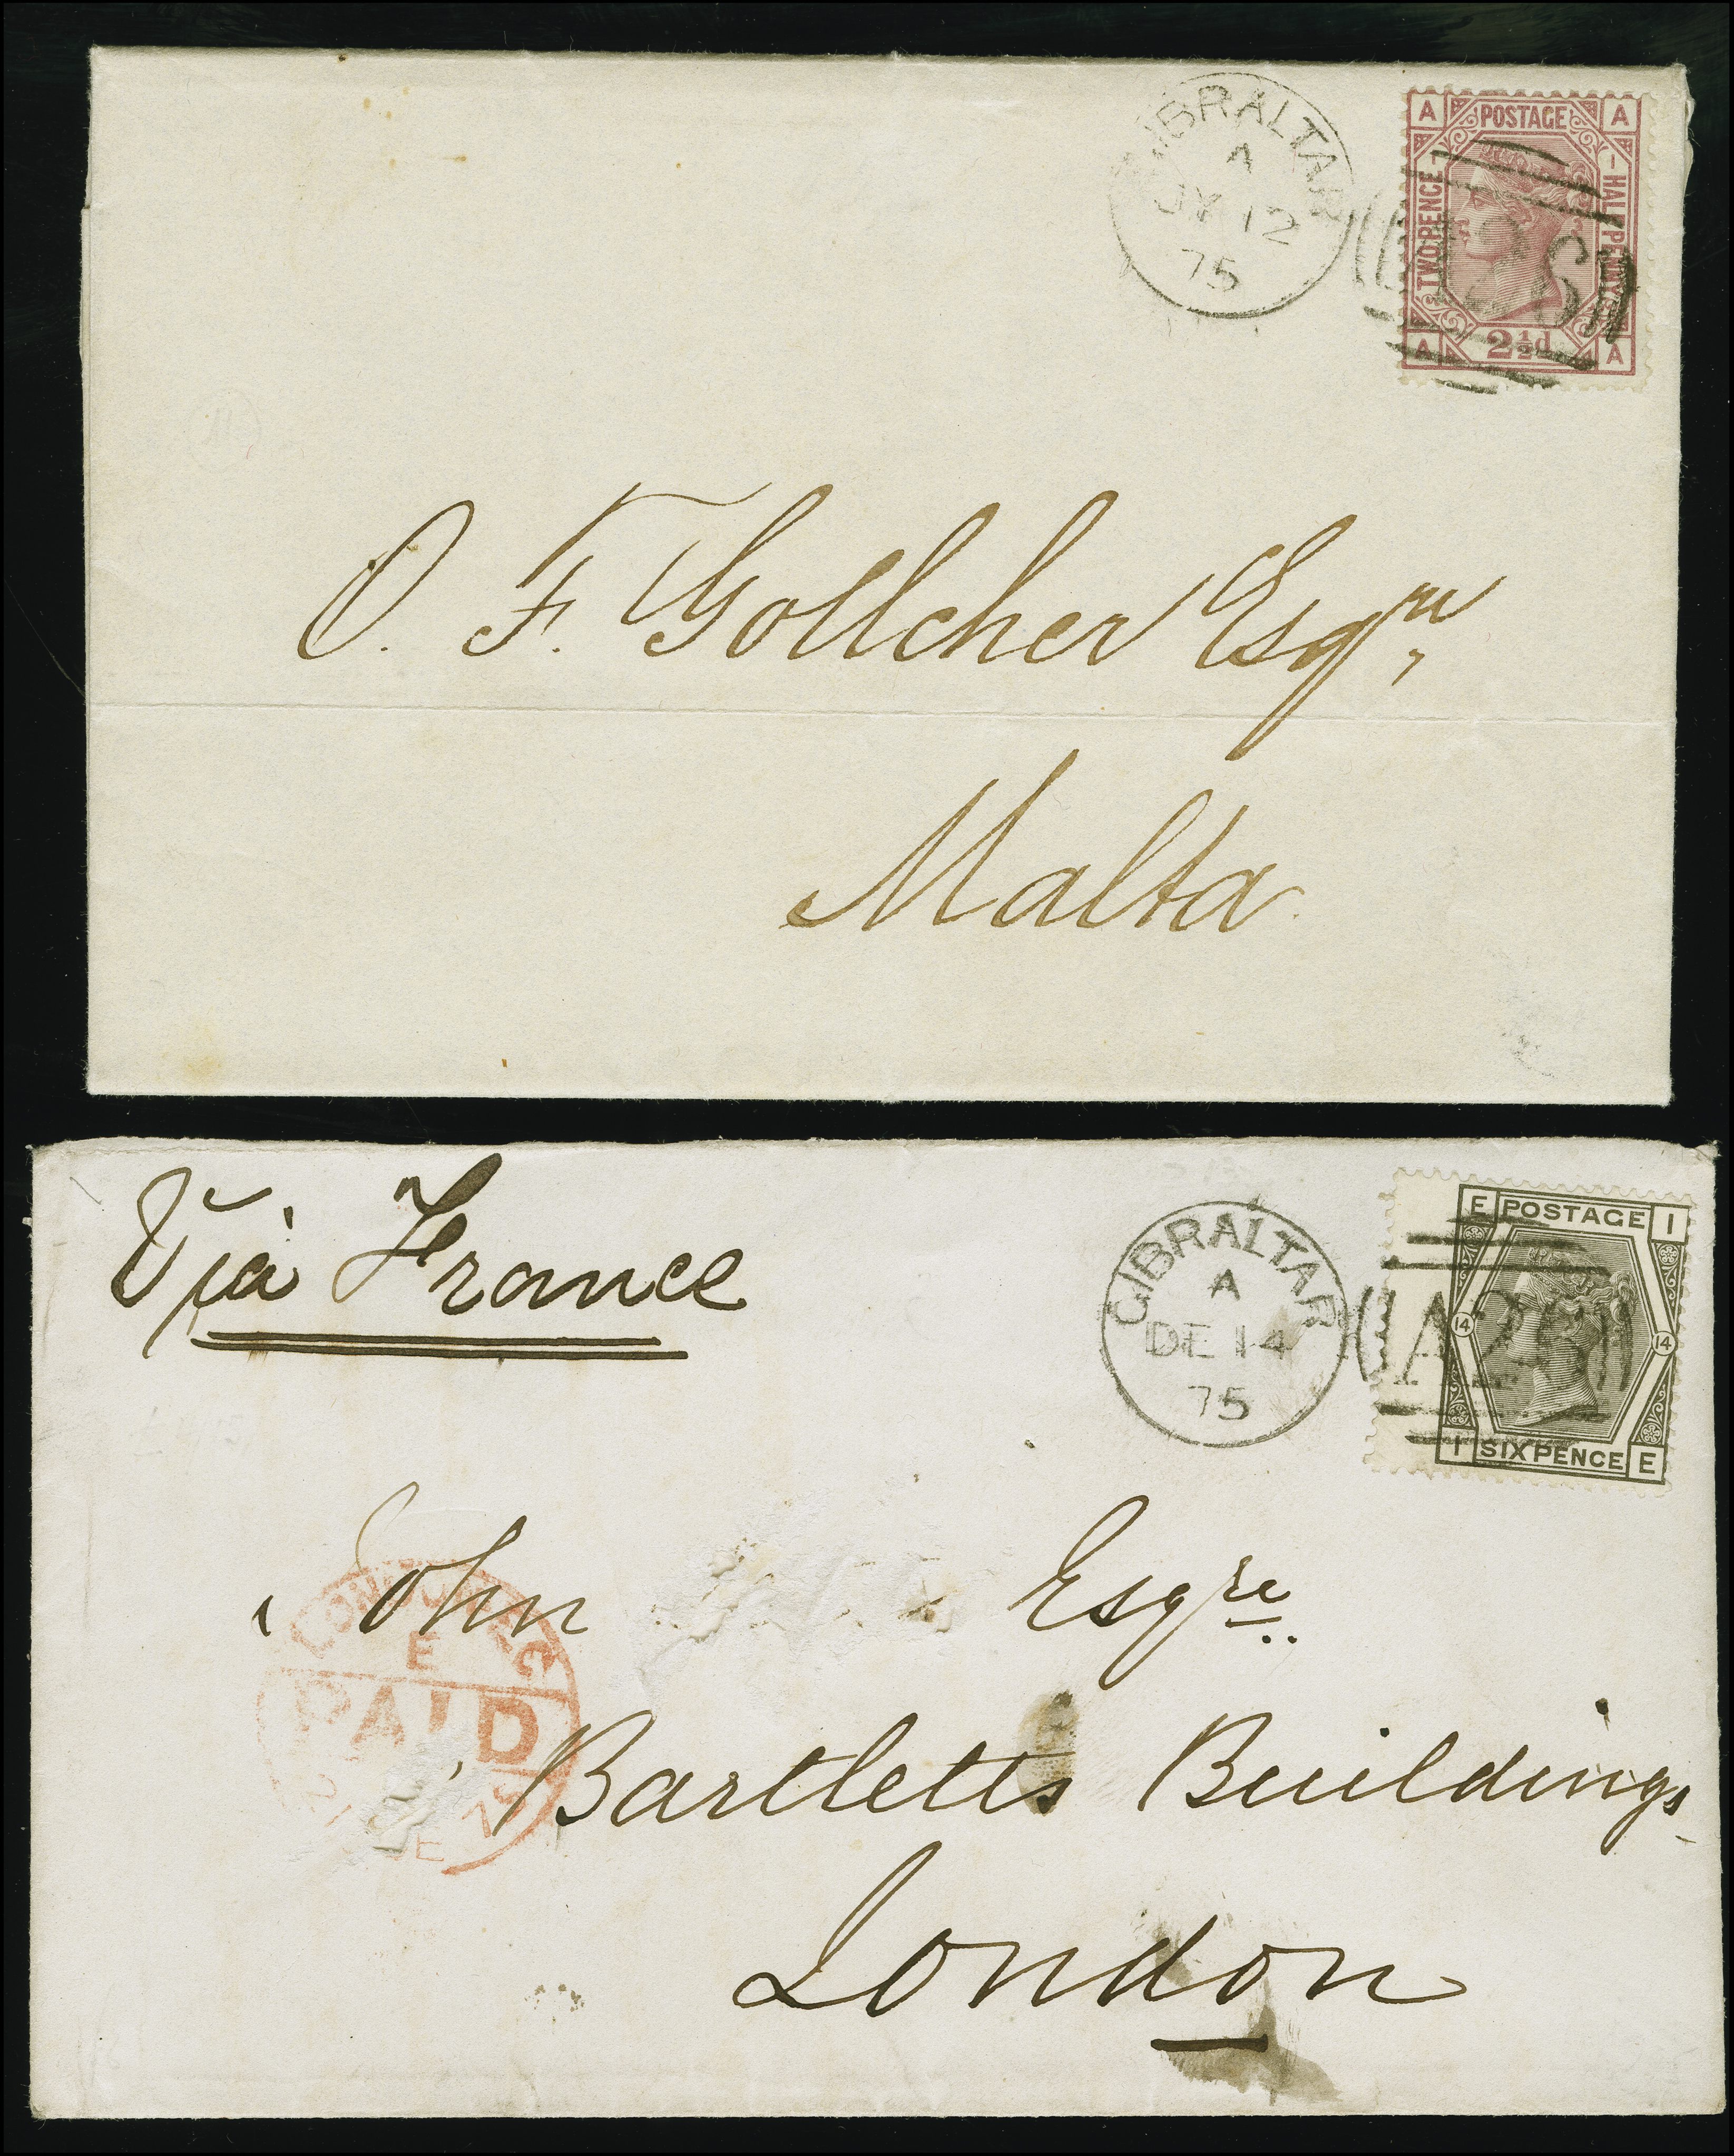 GIBRALTAR
A
JY 12
75
A POSTAGE A
TWO PENCE
HALF PENNY
A26
A 2½d A
O. F. Gollcher Esqre,
Malta
Via France
GIBRALTAR
A
DE 14
75
E POSTAGE I
14 A26 14
I SIX PENCE E
John Esqre
LONDON E.C
E
PAID
Bartletts Buildings
London